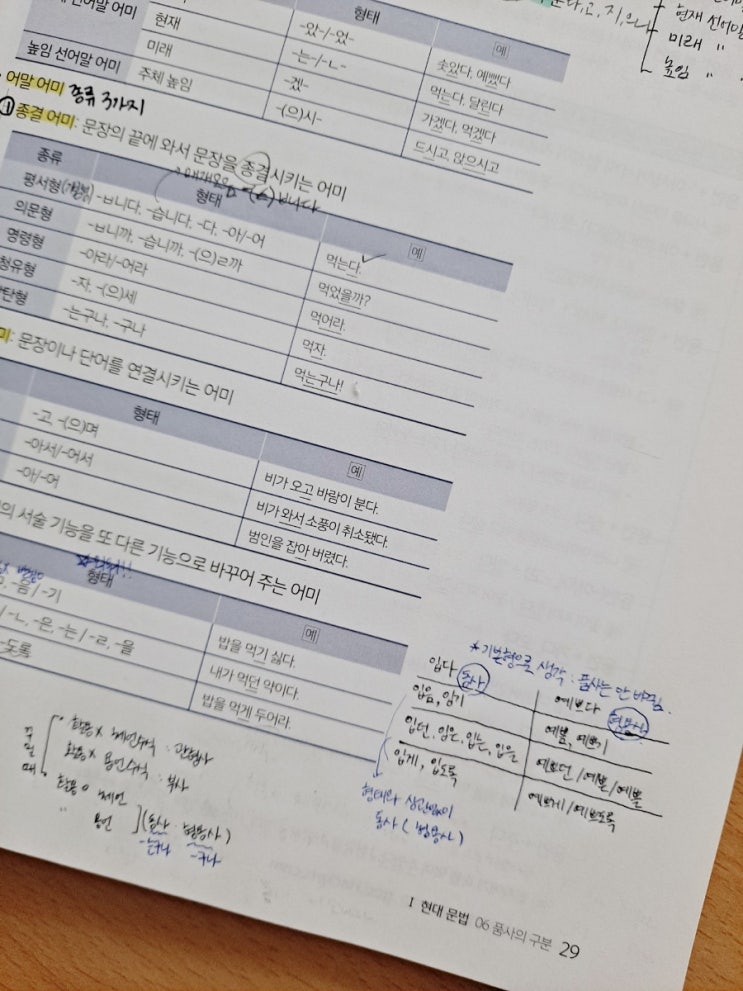 선어말 어미
형태
예
현재
-았-/-었-
솟았다, 예뻤다
미래
-는-/-ㄴ-
먹는다, 달린다
높임 선어말 어미
주체 높임
-겠-
가겠다, 먹겠다
-(으)시-
드시고, 앉으시고
고, 지, 으나
현재 선어말
미래 "
높임 "
어말 어미 종류 3가지
① 종결 어미: 문장의 끝에 와서 문장을 종결시키는 어미
종류
형태
예
평서형(개형)
-ㅂ니다, -습니다, -다, -아/-어
먹는다.
의문형
-ㅂ니까, -습니까, -(으)ㄹ까
먹었을까?
명령형
-아라/-어라
먹어라.
청유형
-자, -(으)세
먹자.
탄형
-는구나, -구나
먹는구나!
미: 문장이나 단어를 연결시키는 어미
형태
예
-고, -(으)며
비가 오고 바람이 분다.
-아서/-어서
비가 와서 소풍이 취소됐다.
-아/-어
범인을 잡아 버렸다.
의 서술 기능을 또 다른 기능으로 바꾸어 주는 어미
형태
예
-음/-기
밥을 먹기 싫다.
-ㄴ, -은, -는/-ㄹ, -을
내가 먹던 약이다.
-도록
밥을 먹게 두어라.
*기본형으로 생각 : 품사는 안 바뀜.
입다 동사
예쁘다 형용사
입음, 입기
예쁨, 예쁘기
입던, 입은, 입는, 입을
예쁘던/예쁜/예쁠
입게, 입도록
예쁘게/예쁘도록
형태와 상관없이
동사(형용사)
활용x 체언수식 : 관형사
활용x 용언수식 : 부사
활용o 체언
" 용언 ](동사 형용사)
-는구나 -구나
I 현대 문법 06 품사의 구분 29